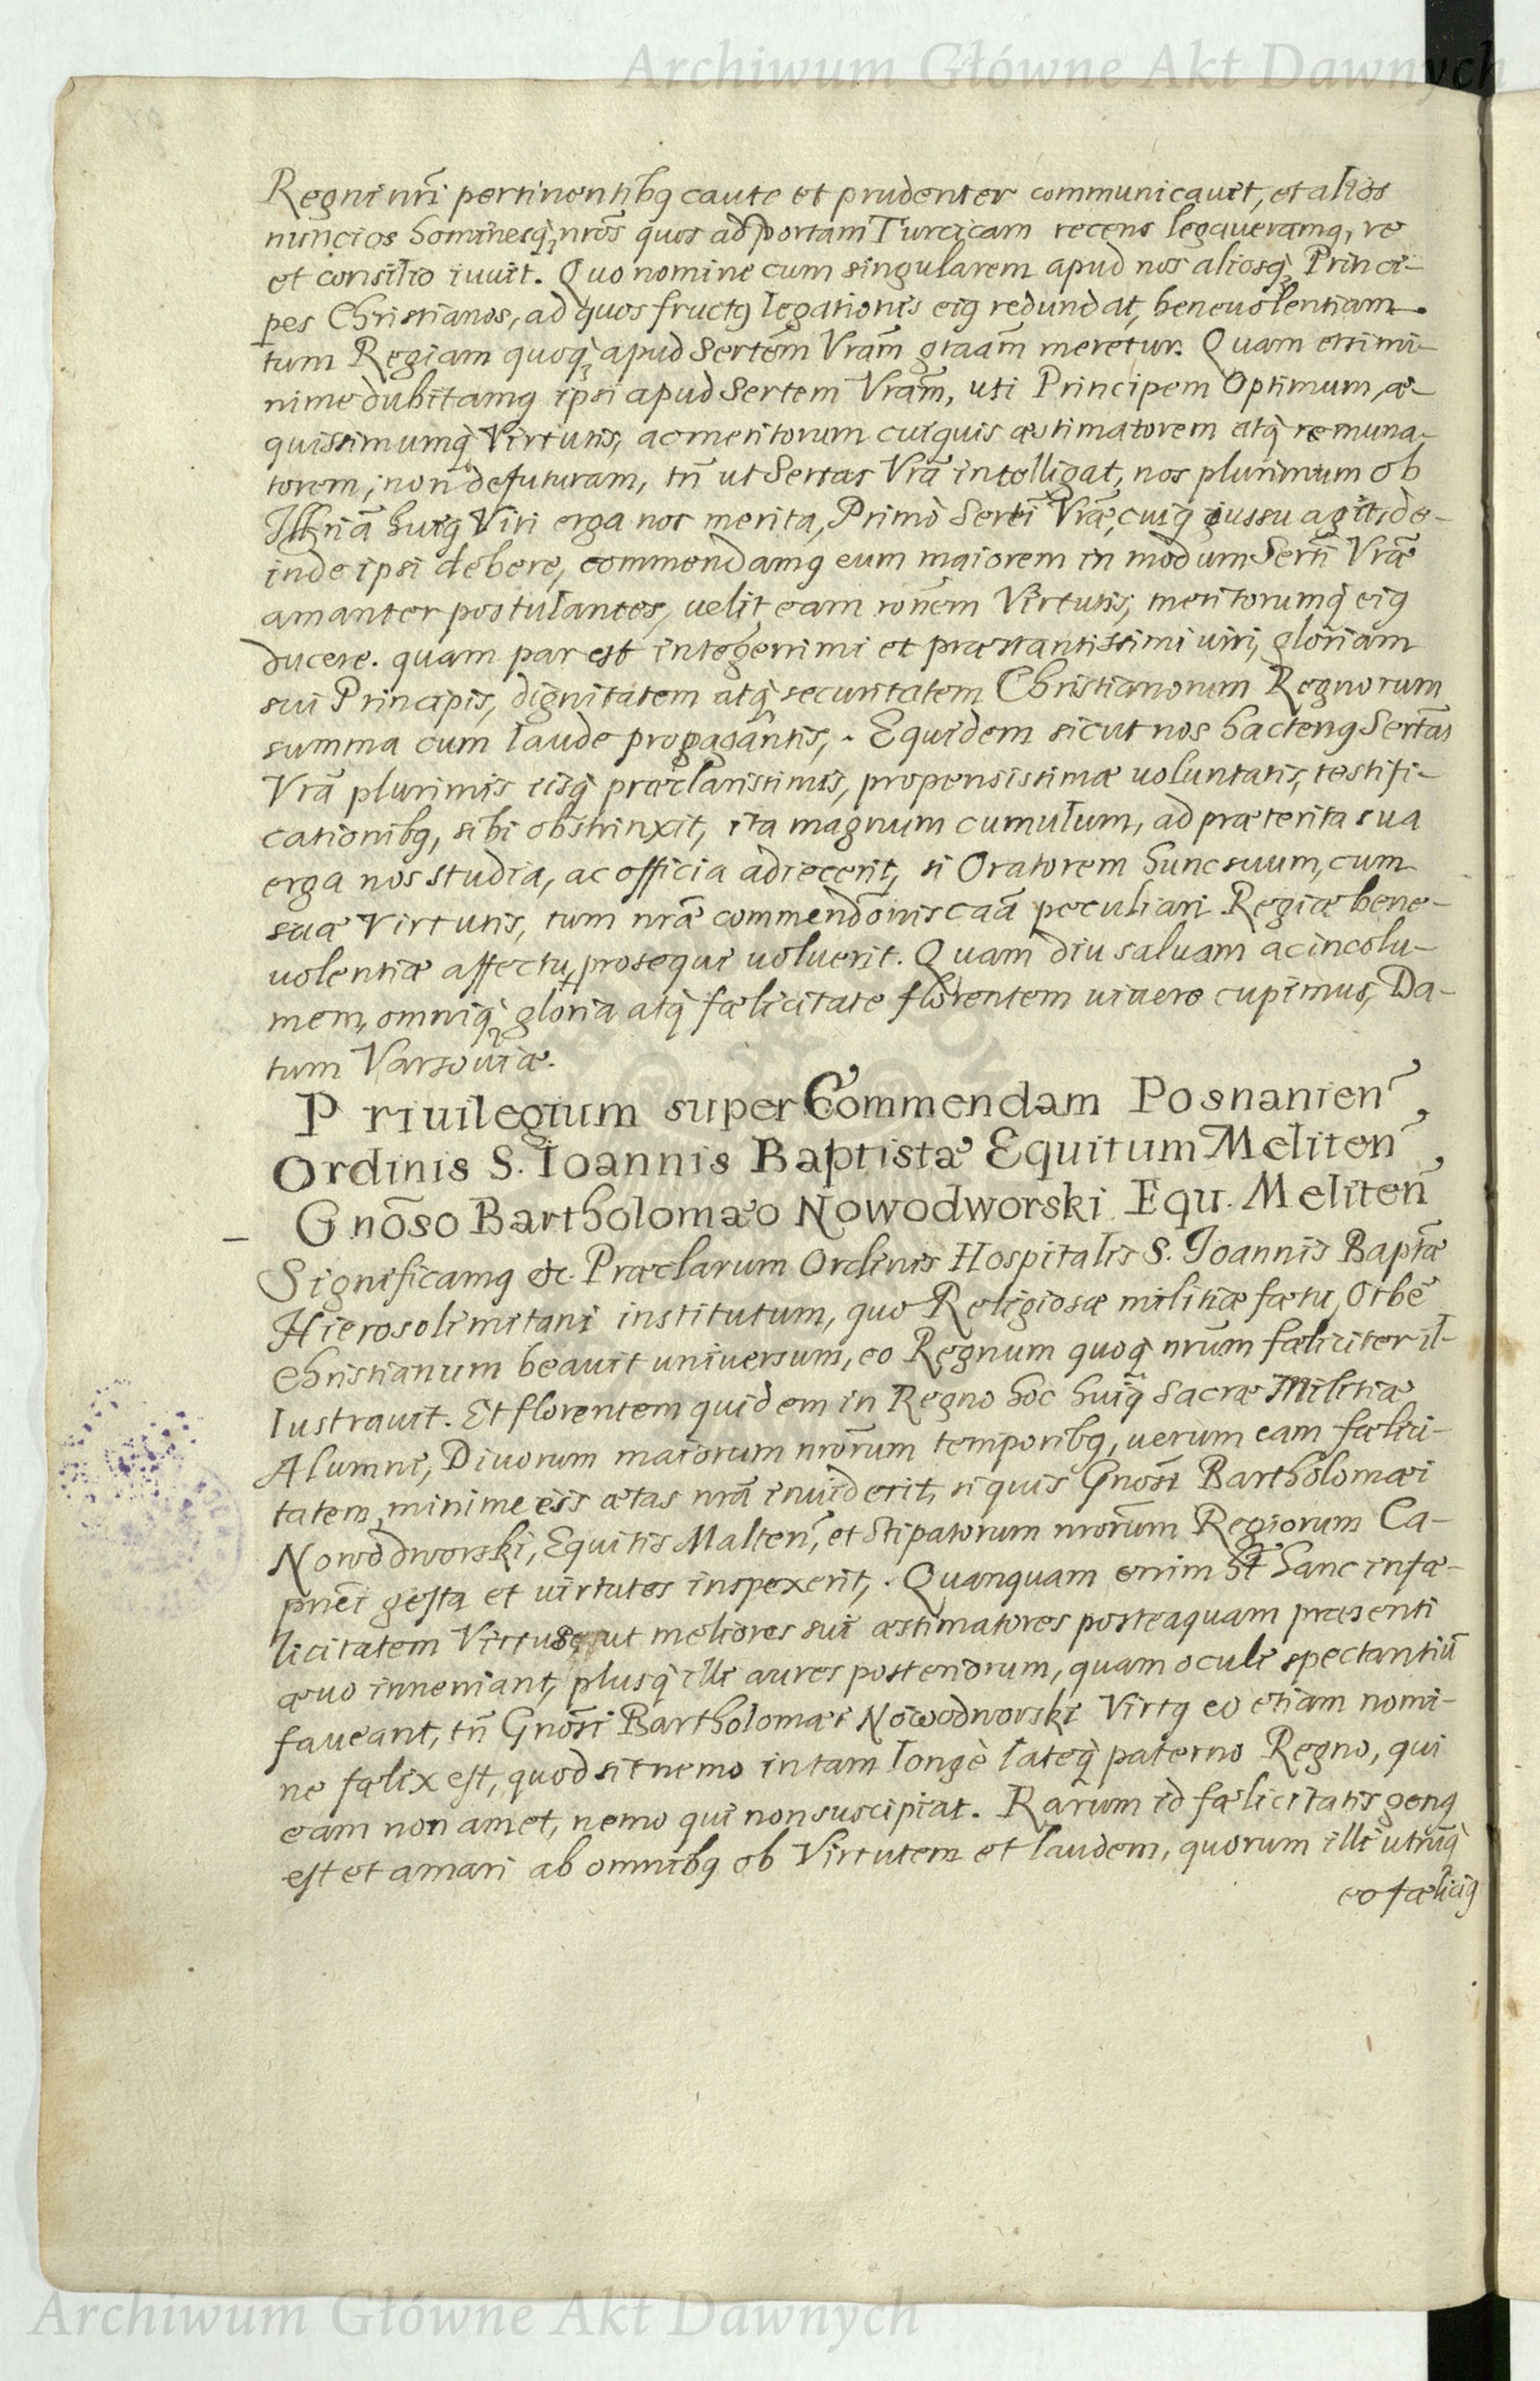 Archiwum Główne Akt Dawnych
Regni nr̃i pertinentibꝗ caute et prudenter communicavit, et alios
nuncios hominesq̀ nrõs quos ad Portam Turcicam recens legaueramꝗ, re
et consilio iuuit. Quo nomine cum singularem apud nos aliosq̀ Princi-
pes Christianos, ad quos fructꝗ legationis eiꝗ redundat, beneuolentiam
tum Regiam quoq̀ apud Sertẽm Vram̃ gtaãm meretur. Quam etsi mi-
nime dubitamꝗ ipsi apud Sertem Vram̃, uti Principem Optimum, æ-
quissimumq̀ Virtutis, ac meritorum cuiquis æstimatorem atq̀ remuna-
torem, non defuturam, tñ ut Sertas Vrã intelligat, nos plurimum ob
huiꝗ Viri erga nos merita, Primò Serti Vræ̃, cuiꝗ iussu agit, de-
inde ipsi debere, commendamꝗ eum maiorem in modum Serti Vræ̃
amanter postulantes, uelit eam ronẽm Virtutis, meritorumq̀ eiꝗ
ducere. quam par est integerrimi et præstantissimi uiri, gloriam
sui Principis, dignitatem atq̀ securitatem Christianorum Regnorum
summa cum laude propagantis, Equidem sicut nos hactenꝗ Sertas̃
Vrã plurimis iisq̀ præclarissimis, propensissimæ uoluntatis, testifi-
cationibꝗ, sibi obstrinxit, ita magnum cumulum, ad præterita sua
erga nos studia, ac officia adiecerit, si Oratorem hunc suum, cum
suæ Virtutis, tum nræ̃ commendõnis caã peculiari Regiæ bene-
uolentiæ affectu prosequi uoluerit. Quam diu saluam ac incolu-
mem, omniq̀ gloria atq̀ fælicitate florentem uiuere cupimus, Da-
tum Varsouiæ.
Priuilegium super Commendam Posnanien̉,
Ordinis S. Ioannis Baptistæ Equitum Meliten̉,
Gnõso Bartholomæo Nowodworski Equ. Meliteñ
Significamꝗ &c. Præclarum Ordinis Hospitalis S. Ioannis Baptæ̃
Hierosolimitani institutum, quo Religiosæ militiæ fætu Orbẽ
Christianum beauit universum, eo Regnum quoq̀ nrũm fæliciter il-
lustrauit. Et florentem quidem in Regno hoc huiꝗ Sacræ Militiæ
Alumni, Divorum maiorum nrõrum temporibꝗ, uerum eam fælici-
tatem minime eis ætas nrã inuiderit, si quis Gnõsi Bartholomæi
Nowodworski, Equitis Malteñ, et Stipatorum nrorũm Regiorum Ca-
pnẽi gesta et uirtutes inspexerit, Quanquam enim hẽt hanc infæ-
licitatem Virtus, ut meliores sui æstimatores posteaquam præsenti
æuo inueniant, plusq̀ illi aures posteriorum, quam oculi spectantiũ
faueant, tñ Gnõsi Bartholomæi Nowodworski Virtꝗ eo etiam nomi-
ne fælix est, quod sit nemo in tam longè lateq̀ paterno Regno, qui
eam non amet, nemo qui non suscipiat. Rarum id fælicitatis genꝗ
est et amari ab omnibꝗ ob Virtutem et laudem, quorum illi utrũq̀
eo fæliciꝗ
Archiwum Główne Akt Dawnych